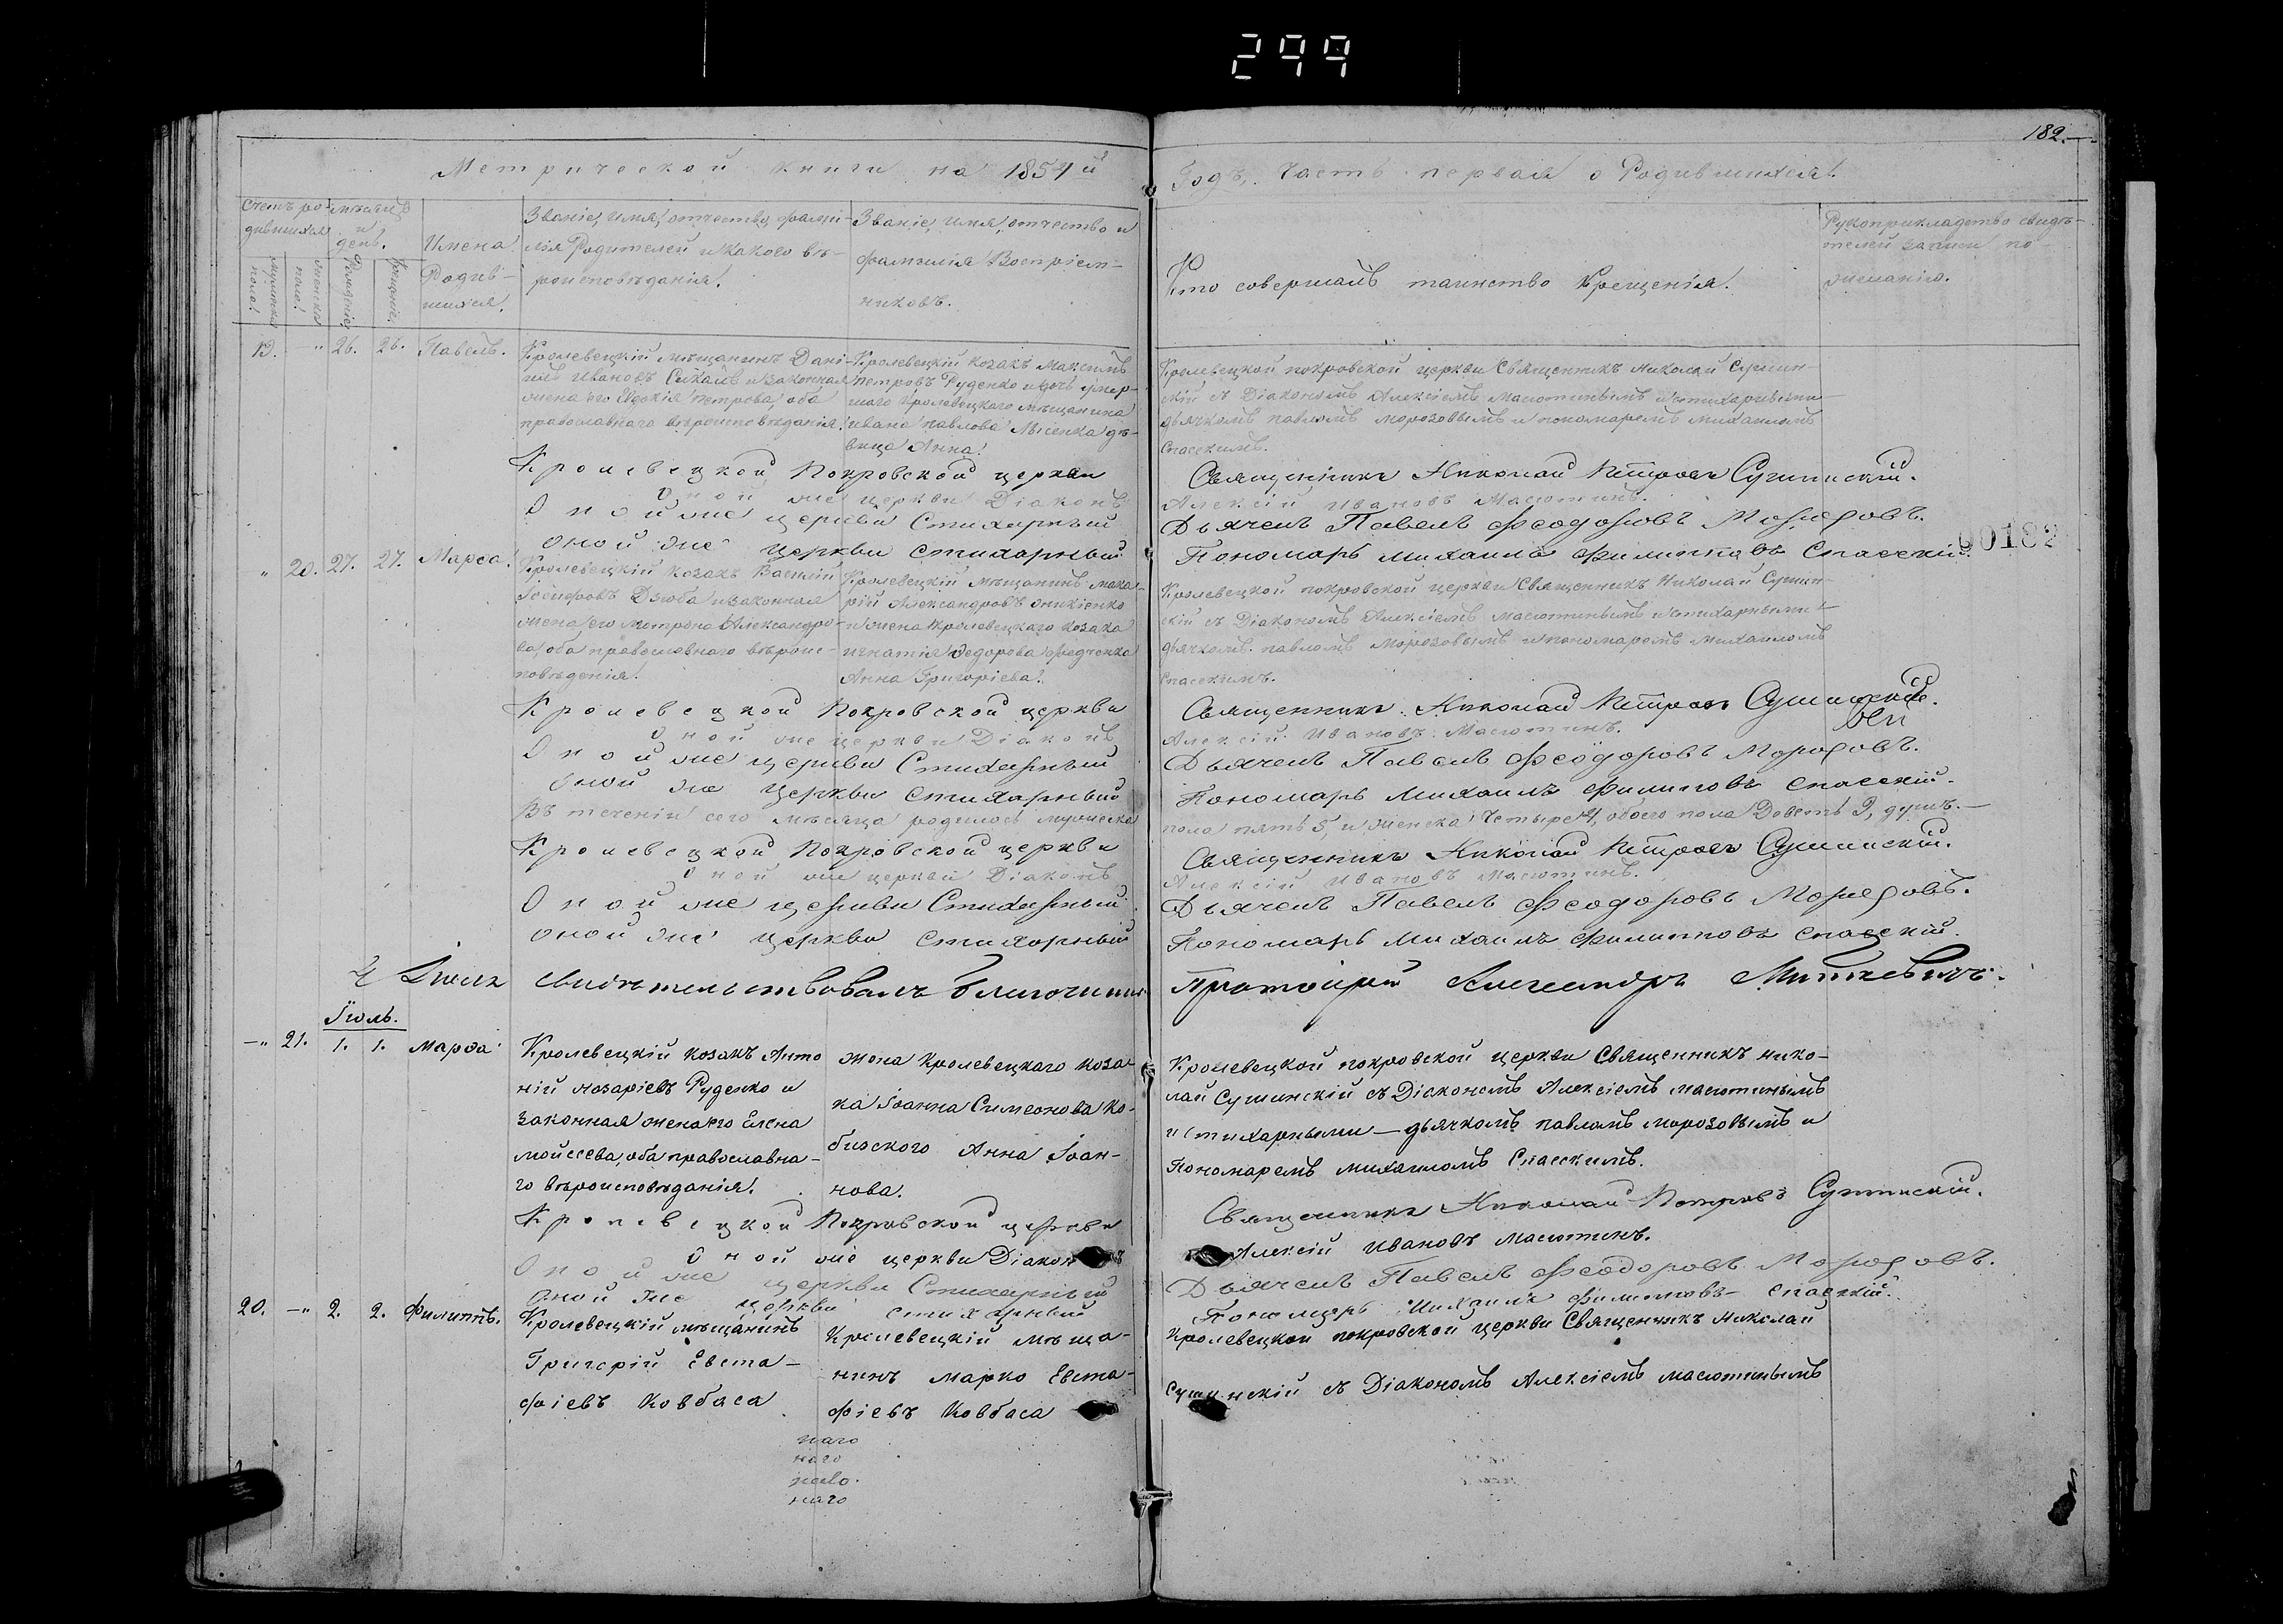 299
182.
Метрической книги на 1854й
Годъ, Часть первая о Родившихся.
Счетъ родившихся
мужеска пола.
женска пола.
Мѣсяцъ и день.
Рожденіе.
Крещеніе.
Имена Родив-
шихся.
Званіе, имя, отчество, фами-
лія Родителей и какого вѣ-
роисповѣданія.
Званіе, имя, отчество и
фамилія Воспріем-
никовъ.
Кто совершалъ таинство Крещенія.
Рукоприкладство свидѣ-
телей записи по
желанію.
19. -„ 26. 26. Павелъ.
Кролевецкій мѣщанинъ Дані-
илъ Ивановъ и законная
жена его Евдокія Петрова, оба
православнаго вѣроисповѣданія.
Кролевецкій козакъ Максимъ
Петровъ Руденко и дочь умер-
шаго Кролевецкаго мѣщанина
Ивана Павлова Лысенка дѣ-
вица Анна.
Кролевецкой покровской церкви Священникъ Николай Сушин-
скій съ Діакономъ Алексіемъ Масютинымъ и стихарными
дьячкомъ павломъ морозовымъ и пономаремъ михаиломъ
Спасскимъ.
Кролевецкой Покровской церкви Священникъ Николай Петровъ Сушинскій.
Оной же церкви Діаконъ Алексій Ивановъ Масютинъ.
Оной же церкви Стихарный Дьячекъ Павелъ Феодоровъ Морозовъ.
Оной же церкви стихарный Пономарь Михаилъ Филиповъ Спасскій.
00182
„ 20. 27. 27. Марѳа.
Кролевецкій козакъ Василій
Іосифовъ Дзюба и законная
жена его Матрона Александро-
ва, оба православнаго вѣроис-
повѣденія.
Кролевецкій мѣщанинъ Мака-
рій Александровъ Оникіенко
и жена Кролевецкаго козака
Игнатія Федорова Федченка
Анна Григоріева.
Кролевецкой покровской церкви Священникъ Николай Сушин-
скій съ Діакономъ Алексіемъ масютинымъ и стихарными
дьячкомъ павломъ Морозовымъ и пономаремъ михаиломъ
Спасскимъ.
Кролевецкой Покровской церкви Священникъ Николай Петровъ Сушинскій.
Оной же церкви Діаконъ Алексій Ивановъ Масютинъ.
Оной же церкви Стихарный Дьячекъ Павелъ Феодоровъ Морозовъ.
Оной же церкви стихарный Пономарь Михаилъ Филиповъ Спасскій.
Въ теченіи сего мѣсяца родилось мужеска пола пять 5, и женска Четыре 4, обоего пола Девять 9, душъ.
Кролевецкой Покровской церкви Священникъ Николай Петровъ Сушинскій.
Оной же церкви Діаконъ Алексій Ивановъ Масютинъ.
Оной же церкви Стихарный Дьячекъ Павелъ Феодоровъ Морозовъ.
Оной же церкви стихарный Пономарь Михаилъ Филиповъ Спасский.
Свидѣтельствовалъ Благочинный Протоіерей Александръ Миткевичъ.
Іюль.
-„ 21. 1. 1. Марѳа
Кролевецкій козакъ Анто
ній Назаріевъ Руденко и
законная жена его Елена
Мойсеева, оба православна-
го вѣроисповѣданія.
жена Кролевецкаго коза-
ка Іоанна Симеонова Ко-
бизского Анна Іоан-
нова.
Кролевецкой покровской церкви Священникъ Нико-
лай Сушинскій съ Діакономъ Алексіемъ масютинымъ
и стихарными – дьячкомъ павломъ морозовымъ и
пономаремъ михаиломъ Спасскимъ.
Кролевецкой Покровской церкви Священникъ Николай Петровъ Сушинскій.
Оной же церкви Діаконъ Алексій Ивановъ Масютинъ.
Оной же церкви Стихарный Дьячекъ Павелъ Феодоровъ Морозовъ.
Оной же церкви стихарный Пономарь Михаилъ Филиповъ Спасскій.
20. -„ 2. 2. Филиппъ.
Кролевецкій мѣщанинъ
Григорій Евста-
фіевъ Ковбаса
Кролевецкій мѣща-
нинъ Марко Евста-
фіевъ Ковбаса
Кролевецкой покровской церкви Священникъ Николай
Сушинскій съ Діакономъ Алексіемъ масютинымъ
наго
наго
наго